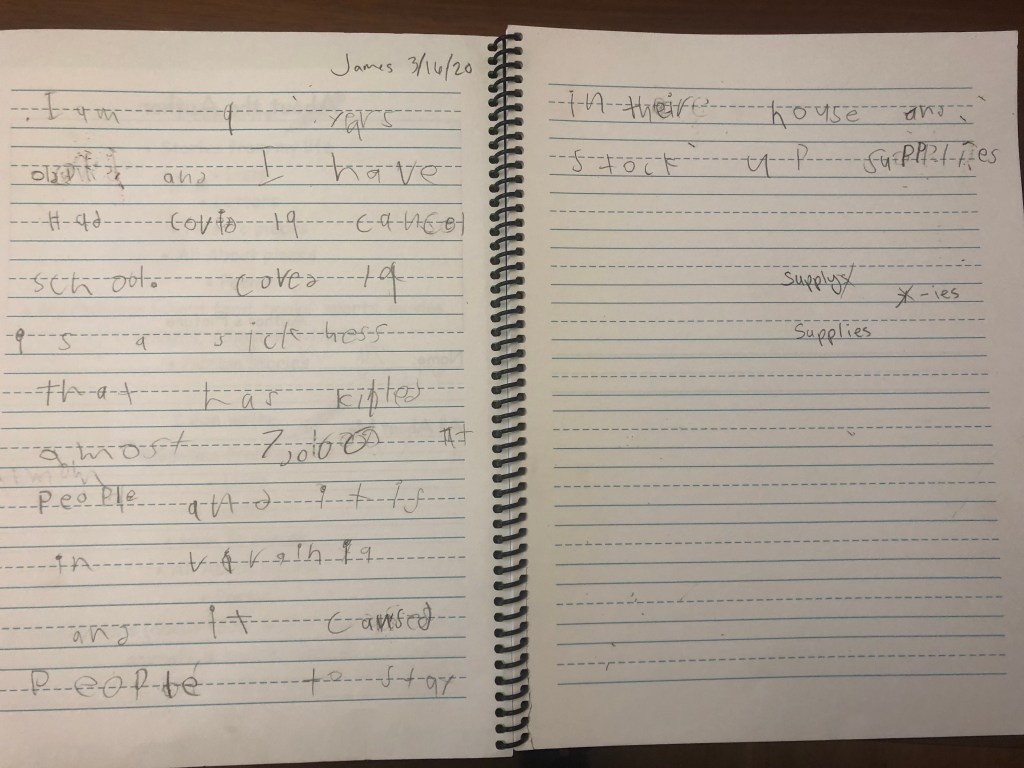 James 3/16/20
I am 9 years
old and I have
Had covid 19 cancel
school. coved 19
is a sickness
that has killed
amost 7,000
people and it is
in
and it caused
people to stay
in theire house and
stock up supplies
supplyx
x -ies
supplies